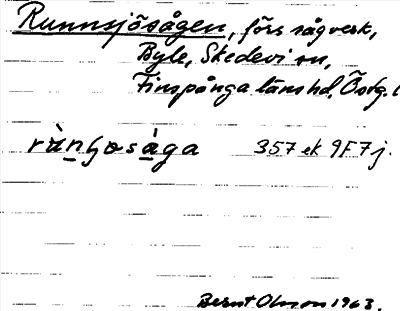 Runnsjösågen, förs sågverk,
Byle, Skedevi sn,
Finspånga läns hd, Östg. l
rùnʃøsàga 357 ek 9F7j.
Bernt Olsson 1963.